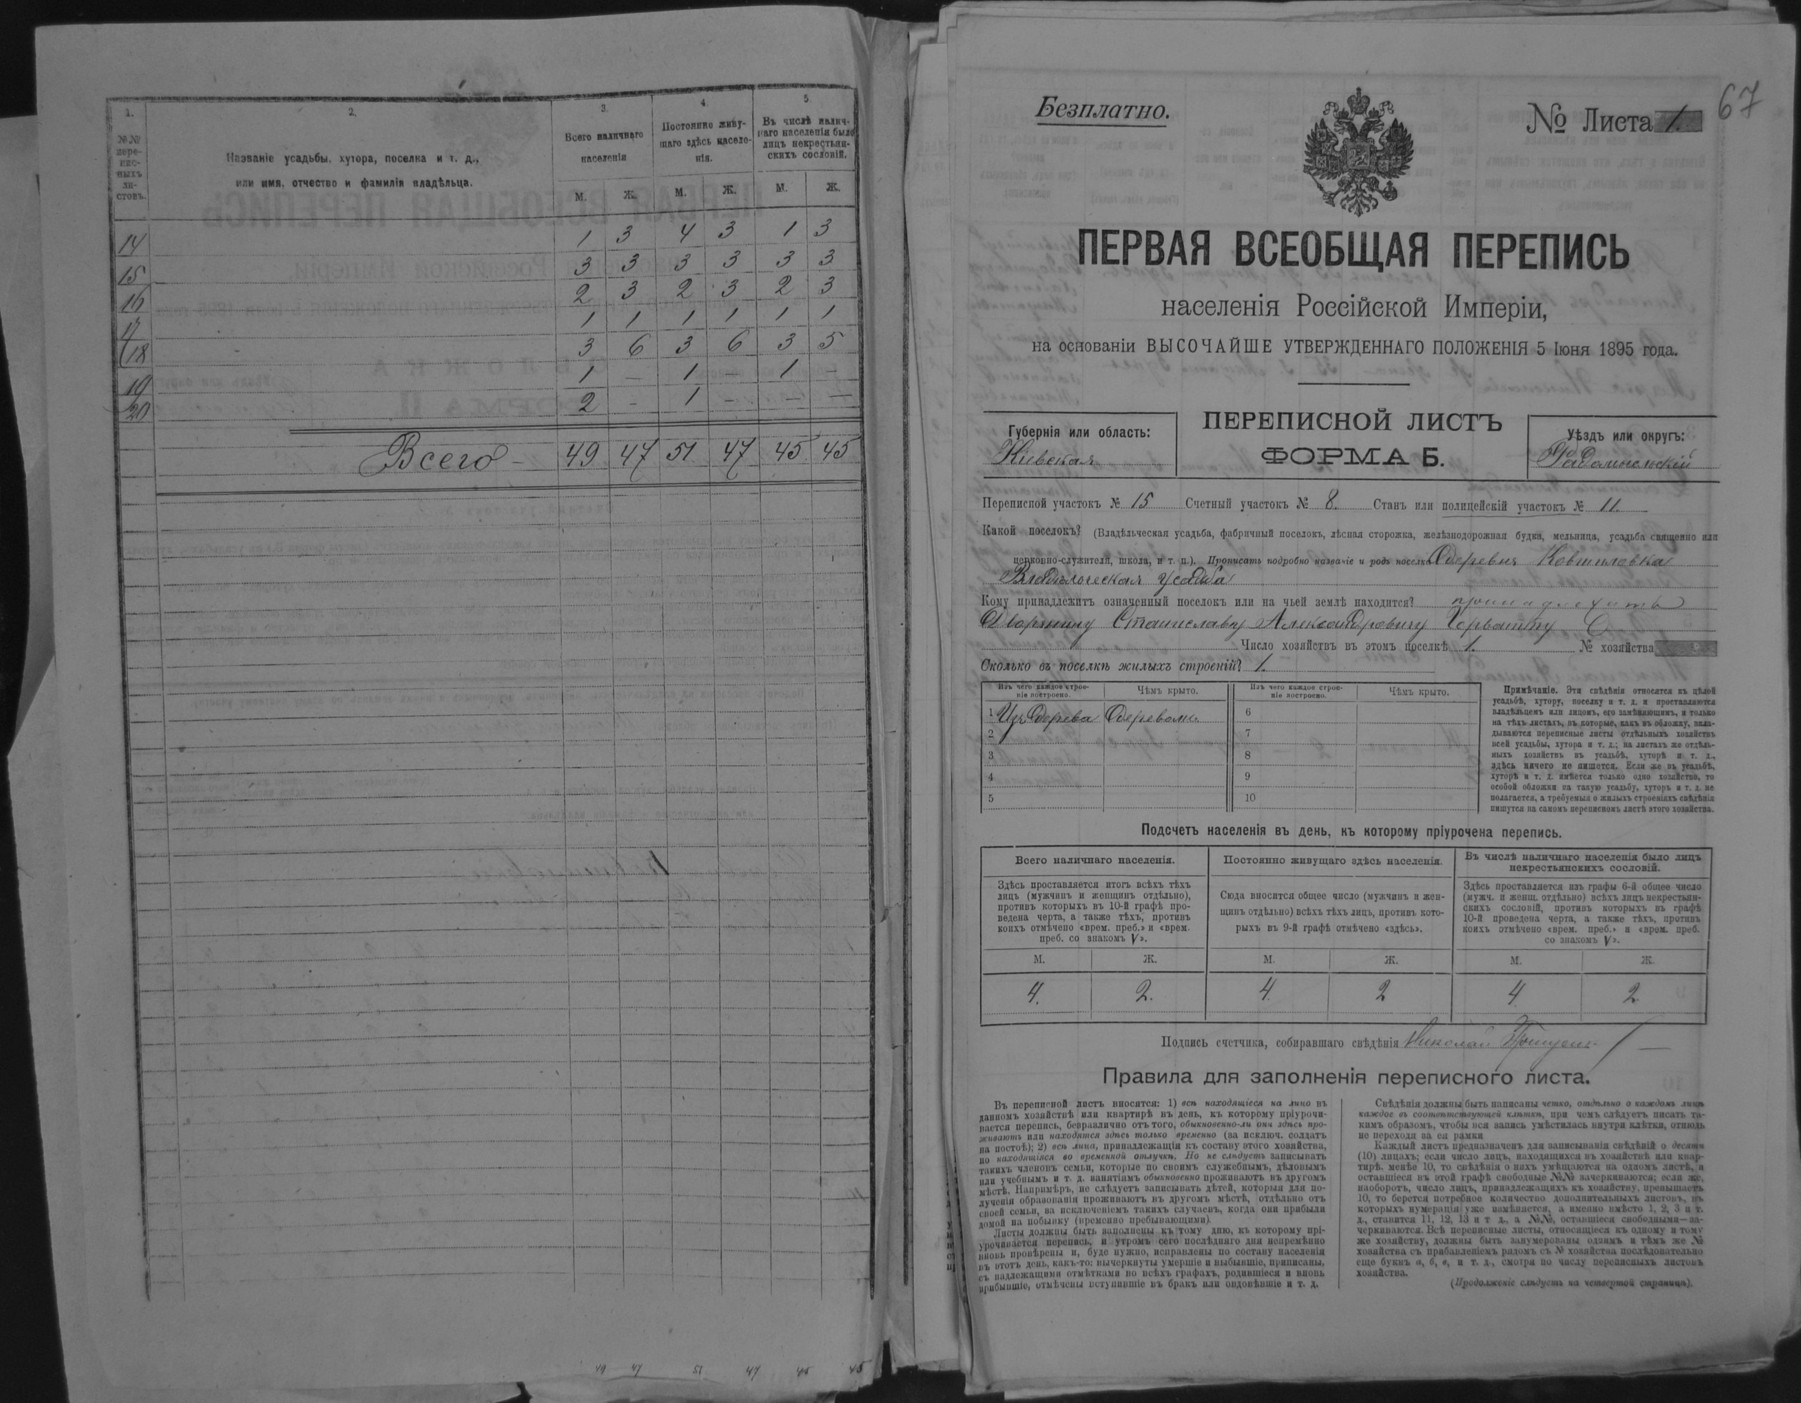 1. 2. 3. 4. 5.
№№ пере-пис-ныхъ ли-стовъ.
Названіе усадьбы, хутора, поселка и т. д.,
или имя, отчество и фамилія владѣльца.
Всего наличнаго населенія
Постоянно живу-щаго здѣсь населе-нія.
Въ числѣ налич-наго населенія было лицъ некрестьян-скихъ сословій.
М. Ж. М. Ж. М. Ж.
14 1 3 4 3 1 3
15 3 3 3 3 3 3
16 2 3 2 3 2 3
17 1 1 1 1 1 1
18 3 6 3 6 3 5
19 1 - 1 - 1 -
20 2 - 1 - - -
Всего - 49 47 51 47 45 45
49 47 51 47 45 45
67
Безплатно.
№ Листа 1.
ПЕРВАЯ ВСЕОБЩАЯ ПЕРЕПИСЬ
населенія Россійской Имперіи,
на основаніи ВЫСОЧАЙШЕ УТВЕРЖДЕННАГО ПОЛОЖЕНІЯ 5 Іюня 1895 года.
Губернія или область:
Кіевская
ПЕРЕПИСНОЙ ЛИСТЪ
ФОРМА Б.
Уѣздъ или округъ:
Радомысльскій
Переписной участокъ № 15 Счетный участокъ № 8. Станъ или полицейскій участокъ № 11.
Какой поселокъ? (Владѣльческая усадьба, фабричный поселокъ, лѣсная сторожка, желѣзнодорожная будка, мельница, усадьба священно или
церковно-служителя, школа, и т. п.). Прописать подробно названіе и родъ поселка Деревня
Владѣльческая усадьба
Кому принадлежитъ означенный поселокъ или на чьей землѣ находится? принадлежитъ
Дворянину Станиславу Александровичу
Число хозяйствъ въ этомъ поселкѣ 1. № хозяйства
Сколько въ поселкѣ жилыхъ строеній? 1.
Изъ чего каждое строе-ніе построено. Чѣмъ крыто. Изъ чего каждое строе-ніе построено. Чѣмъ крыто.
1 Изъ дерева Деревом. 6
2 7
3 8
4 9
5 10
Примѣчаніе. Эти свѣдѣнія относятся къ цѣлой
усадьбѣ, хутору, поселку и т. д. и проставляются
владѣльцемъ или лицомъ, его замѣняющимъ, и только
на тѣхъ листахъ, въ которые, какъ въ обложку, вкла-
дываются переписные листы отдѣльныхъ хозяйствъ
всей усадьбы, хутора и т. д.; на листахъ же отдѣль-
ныхъ хозяйствъ въ усадьбѣ, хуторѣ и т. д.,
здѣсь ничего не пишется. Если же въ усадьбѣ,
хуторѣ и т. д. имѣется только одно хозяйство, то
особой обложки на такую усадьбу, хуторъ и т. д. не
полагается, а требуемыя о жилыхъ строеніяхъ свѣдѣнія
пишутся на самомъ переписномъ листѣ этого хозяйства.
Подсчетъ населенія въ день, къ которому пріурочена перепись.
Всего наличнаго населенія.
Здѣсь проставляется итогъ всѣхъ тѣхъ
лицъ (мужчинъ и женщинъ отдѣльно),
противъ которыхъ въ 10-й графѣ про-
ведена черта, а также тѣхъ, противъ
коихъ отмѣчено «врем. преб.» и «врем.
преб. со знакомъ V».
Постоянно живущаго здѣсь населенія.
Сюда вносится общее число (мужчинъ и жен-
щинъ отдѣльно) всѣхъ тѣхъ лицъ, противъ кото-
рыхъ въ 9-й графѣ отмѣчено «здѣсь».
Въ числѣ наличнаго населенія было лицъ
некрестьянскихъ сословій.
Здѣсь проставляется изъ графы 6-й общее число
(мужч. и женщ. отдѣльно) всѣхъ лицъ некрестьян-
скихъ сословій, противъ которыхъ въ графѣ
10-й проведена черта, а также тѣхъ, противъ
коихъ отмѣчено «врем. преб.» и «врем. преб.
со знакомъ V».
М. Ж. М. Ж. М. Ж.
4. 2. 4. 2 4 2.
Подпись счетчика, собиравшаго свѣдѣнія Николай
Правила для заполненія переписного листа.
Въ переписной листъ вносятся: 1) всѣ находящіеся на лицо въ
данномъ хозяйствѣ или квартирѣ въ день, къ которому пріурочи-
вается перепись, безразлично отъ того, обыкновенно-ли они здѣсь про-
живаютъ или находятся здѣсь только временно (за исключ. солдатъ
на постоѣ); 2) всѣ лица, принадлежащія къ составу этого хозяйства,
но находящіяся во временной отлучкѣ. Но не слѣдуетъ записывать
такихъ членовъ семьи, которые по своимъ служебнымъ, дѣловымъ
или учебнымъ и т. д. занятіямъ обыкновенно проживаютъ въ другомъ
мѣстѣ. Напримѣръ, не слѣдуетъ записывать дѣтей, которыя для по-
лученія образованія проживаютъ въ другомъ мѣстѣ, отдѣльно отъ
своей семьи, за исключеніемъ такихъ случаевъ, когда они прибыли
домой на побывку (временно пребывающими).
Листы должны быть заполнены къ тому дню, къ которому прі-
урочивается перепись, и утромъ сего послѣдняго дня непремѣнно
вновь провѣрены и, буде нужно, исправлены по составу населенія
въ этотъ день, какъ-то: вычеркнуты умершіе и выбывшіе, приписаны,
съ надлежащими отмѣтками во всѣхъ графахъ, родившіеся и вновь
прибывшіе, отмѣчены вступившіе въ бракъ или овдовѣвшіе и т. д.
Свѣдѣнія должны быть написаны четко, отдѣльно о каждомъ лицѣ
каждое въ соотвѣтствующей клѣткѣ, при чемъ слѣдуетъ писать та-
кимъ образомъ, чтобы вся запись умѣстилась внутри клѣтки, отнюдь
не переходя за ея рамки
Каждый листъ предназначенъ для записыванія свѣдѣній о десяти
(10) лицахъ; если число лицъ, находящихся въ хозяйствѣ или квар-
тирѣ, менѣе 10, то свѣдѣнія о нихъ умѣщаются на одномъ листѣ, а
оставшіеся въ этой графѣ свободные №№ зачеркиваются; если же,
наоборотъ, число лицъ, принадлежащихъ къ хозяйству, превышаетъ
10, то берется потребное количество дополнительныхъ листовъ, въ
которыхъ нумерація уже измѣняется, а именно вмѣсто 1, 2, 3 и т.
д., ставится 11, 12, 13 и т. д., а №№, оставшіеся свободными—за-
черкиваются. Всѣ переписные листы, относящіеся къ одному и тому
же хозяйству, должны быть занумерованы однимъ и тѣмъ же №
хозяйства съ прибавленіемъ рядомъ съ № хозяйства послѣдовательно
еще буквъ а, б, в, и т. д., смотря по числу переписныхъ листовъ
хозяйства.
(Продолженіе слѣдуетъ на четвертой страницѣ).